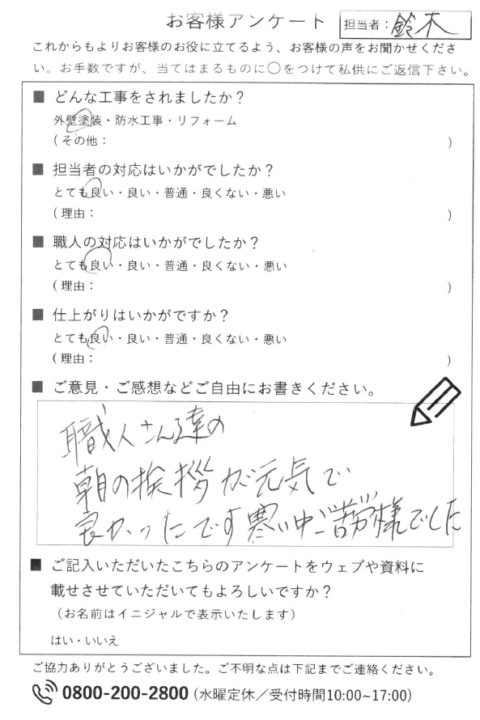 お客様アンケート
担当者：鈴木
これからもよりお客様のお役に立てるよう、お客様の声をお聞かせくださ
い。お手数ですが、当てはまるものに〇をつけて私供にご返信下さい。
■ どんな工事をされましたか？
外壁塗装・防水工事・リフォーム
（その他：　）
■ 担当者の対応はいかがでしたか？
とても良い・良い・普通・良くない・悪い
（理由：　）
■ 職人の対応はいかがでしたか？
とても良い・良い・普通・良くない・悪い
（理由：　）
■ 仕上がりはいかがですか？
とても良い・良い・普通・良くない・悪い
（理由：　）
■ ご意見・ご感想などご自由にお書きください。
職人さん達の
朝の挨拶が元気で
良かったです寒い中ご苦労様でした
■ ご記入いただいたこちらのアンケートをウェブや資料に
載せさせていただいてもよろしいですか？
（お名前はイニシャルで表示いたします）
はい・いいえ
ご協力ありがとうございました。ご不明な点は下記までご連絡ください。
0800-200-2800（水曜定休／受付時間10:00~17:00）